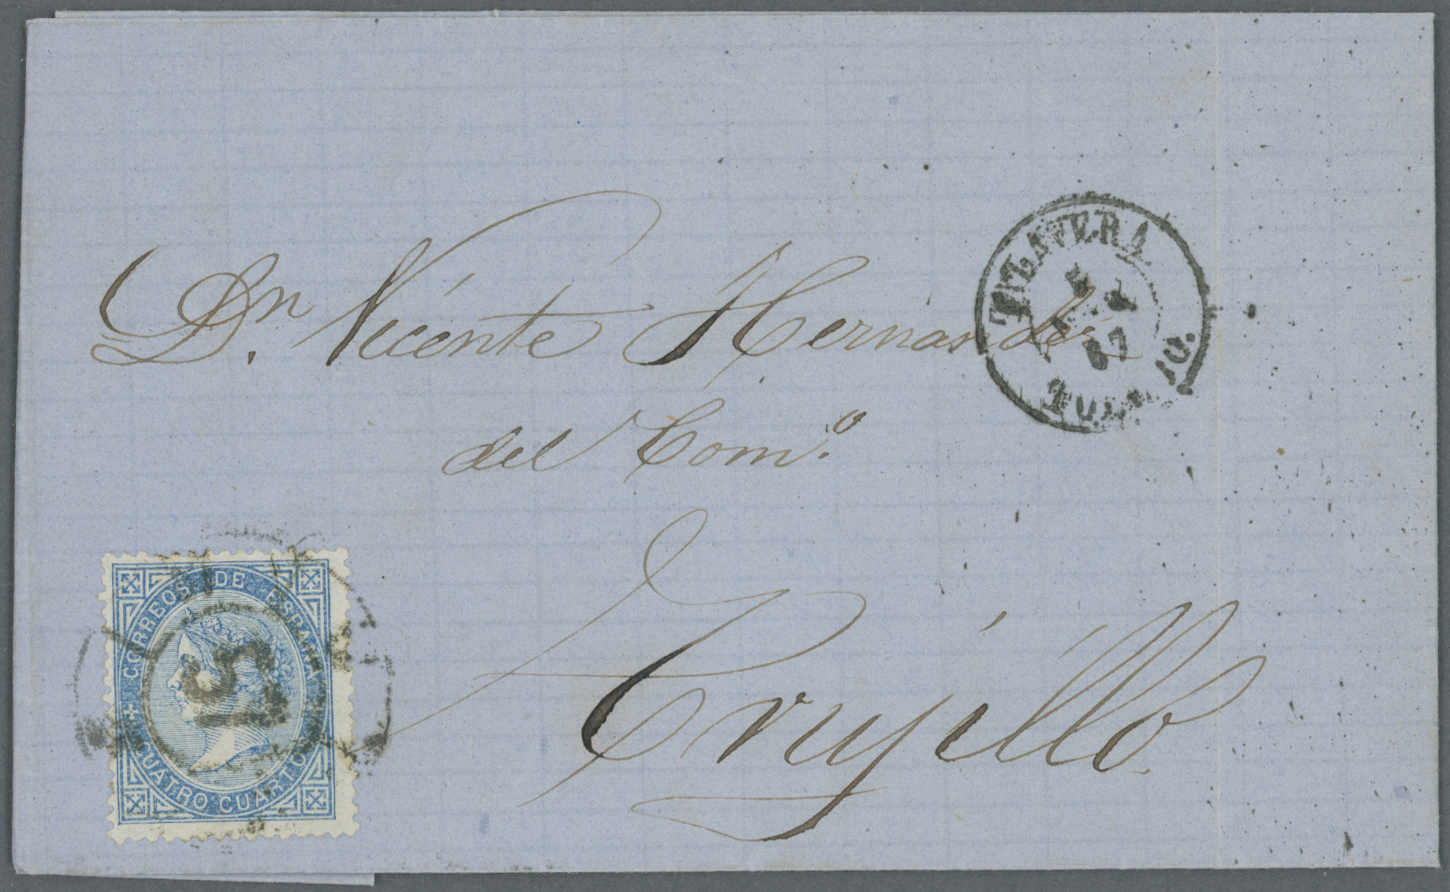 Dn. Vicente Hernandez
del Com.o
Trujillo
TALAVERA
67
TOLEDO.
CORREOS DE ESPAÑA
CUATRO CUARTOS
15